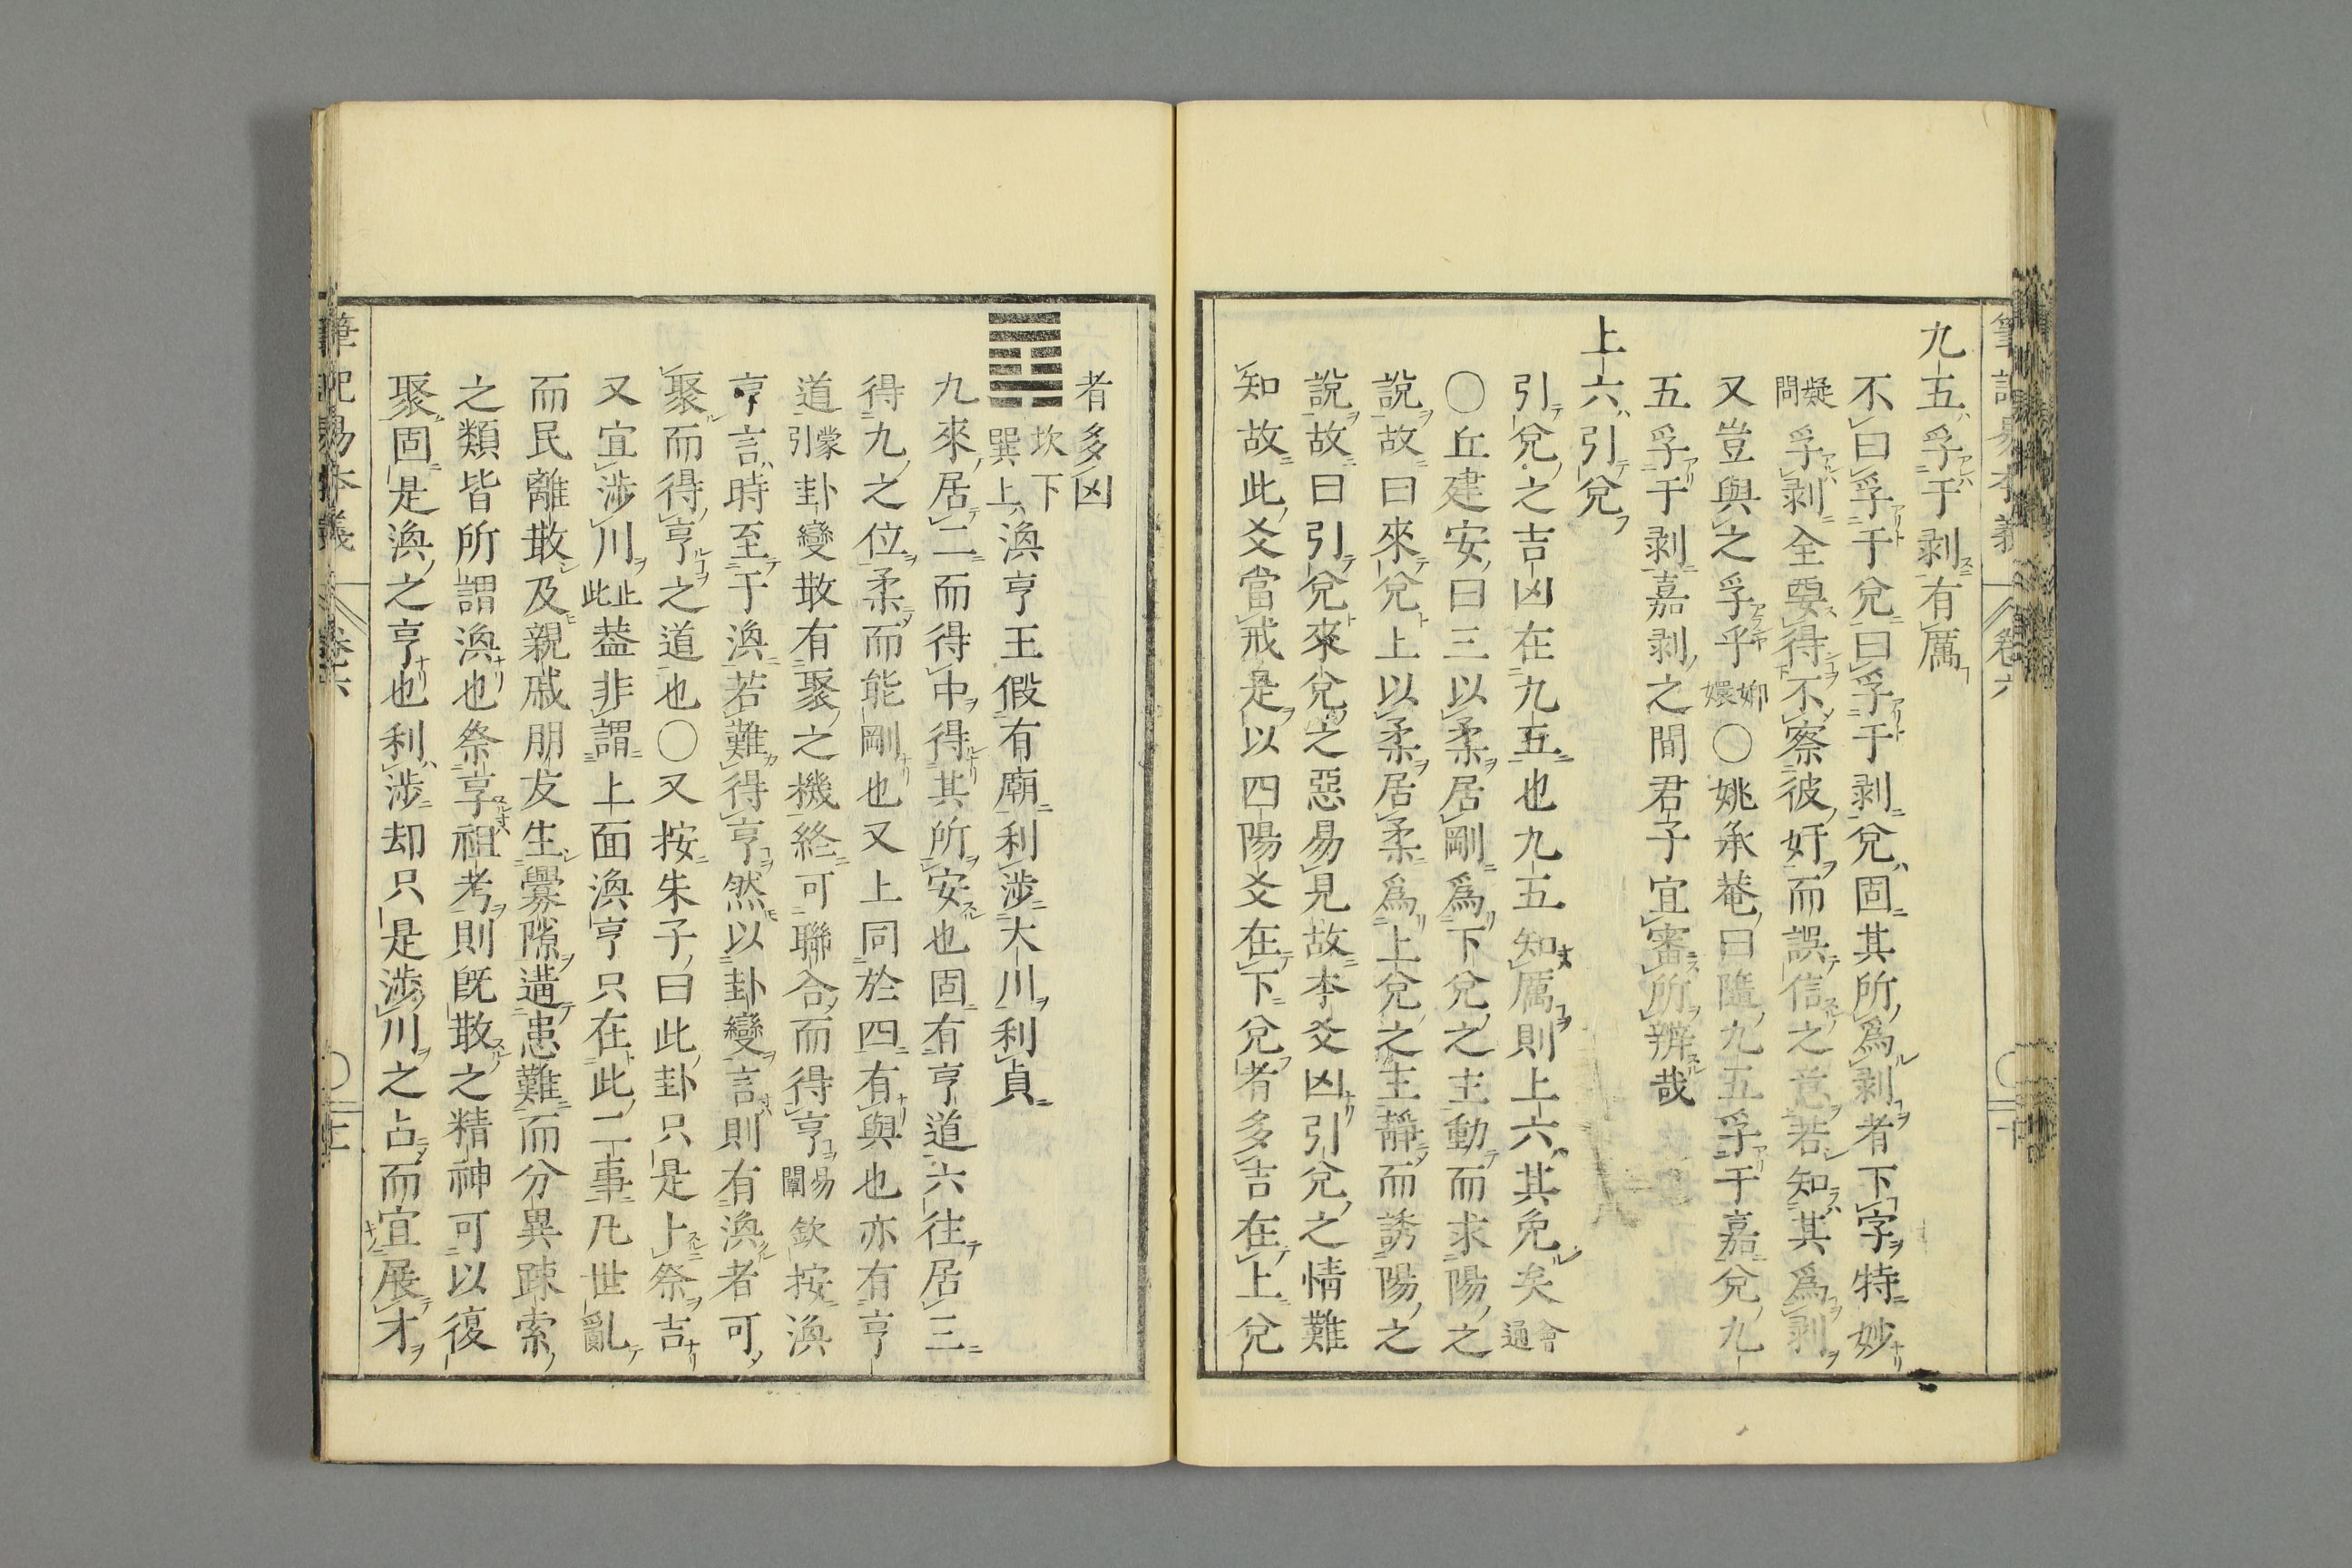 九五孚于剥有厲
不曰孚于兌曰孚于剥兌固其所爲剥者下字特妙
疑問孚剥全要得不察彼奸而誤信之意若知其爲剥
又豈與之孚乎嫏嬛〇姚承菴曰隨九五孚于嘉兌九
五孚于剥嘉剥之間君子宜審所辨哉
上六引兌
引兌之吉凶在九五也九五知厲則上六其免矣會通
〇丘建安曰三以柔居剛爲下兌之主動而求陽之
說故曰來兌上以柔居柔爲上兌之主靜而誘陽之
說故曰引兌來兌之惡易見故李爻凶引兌之情難
知故此爻當戒是以四陽爻在下兌者多吉在上兌
者多凶
坎下巽上渙亨王假有廟利涉大川利貞
九來居二而得中得其所安也固有亨道六往居三
得九之位柔而能剛也又上同於四有與也亦有亨
道蒙引卦變散有聚之機終可聯合而得亨易闡欽按渙
亨言時至于渙若難得亨然以卦變言則有渙者可
聚而得亨之道也〇又按朱子曰此卦只是卜祭吉
又宜涉川止此葢非謂上面渙亨只在此二事凡世亂
而民離散及親戚朋友生釁隙遘患難而分異踈索
之類皆所謂渙也祭享祖考則旣散之精神可以復
聚固是渙之亨也利涉却只是涉川之占而宜展才
筆記易本義 卷六